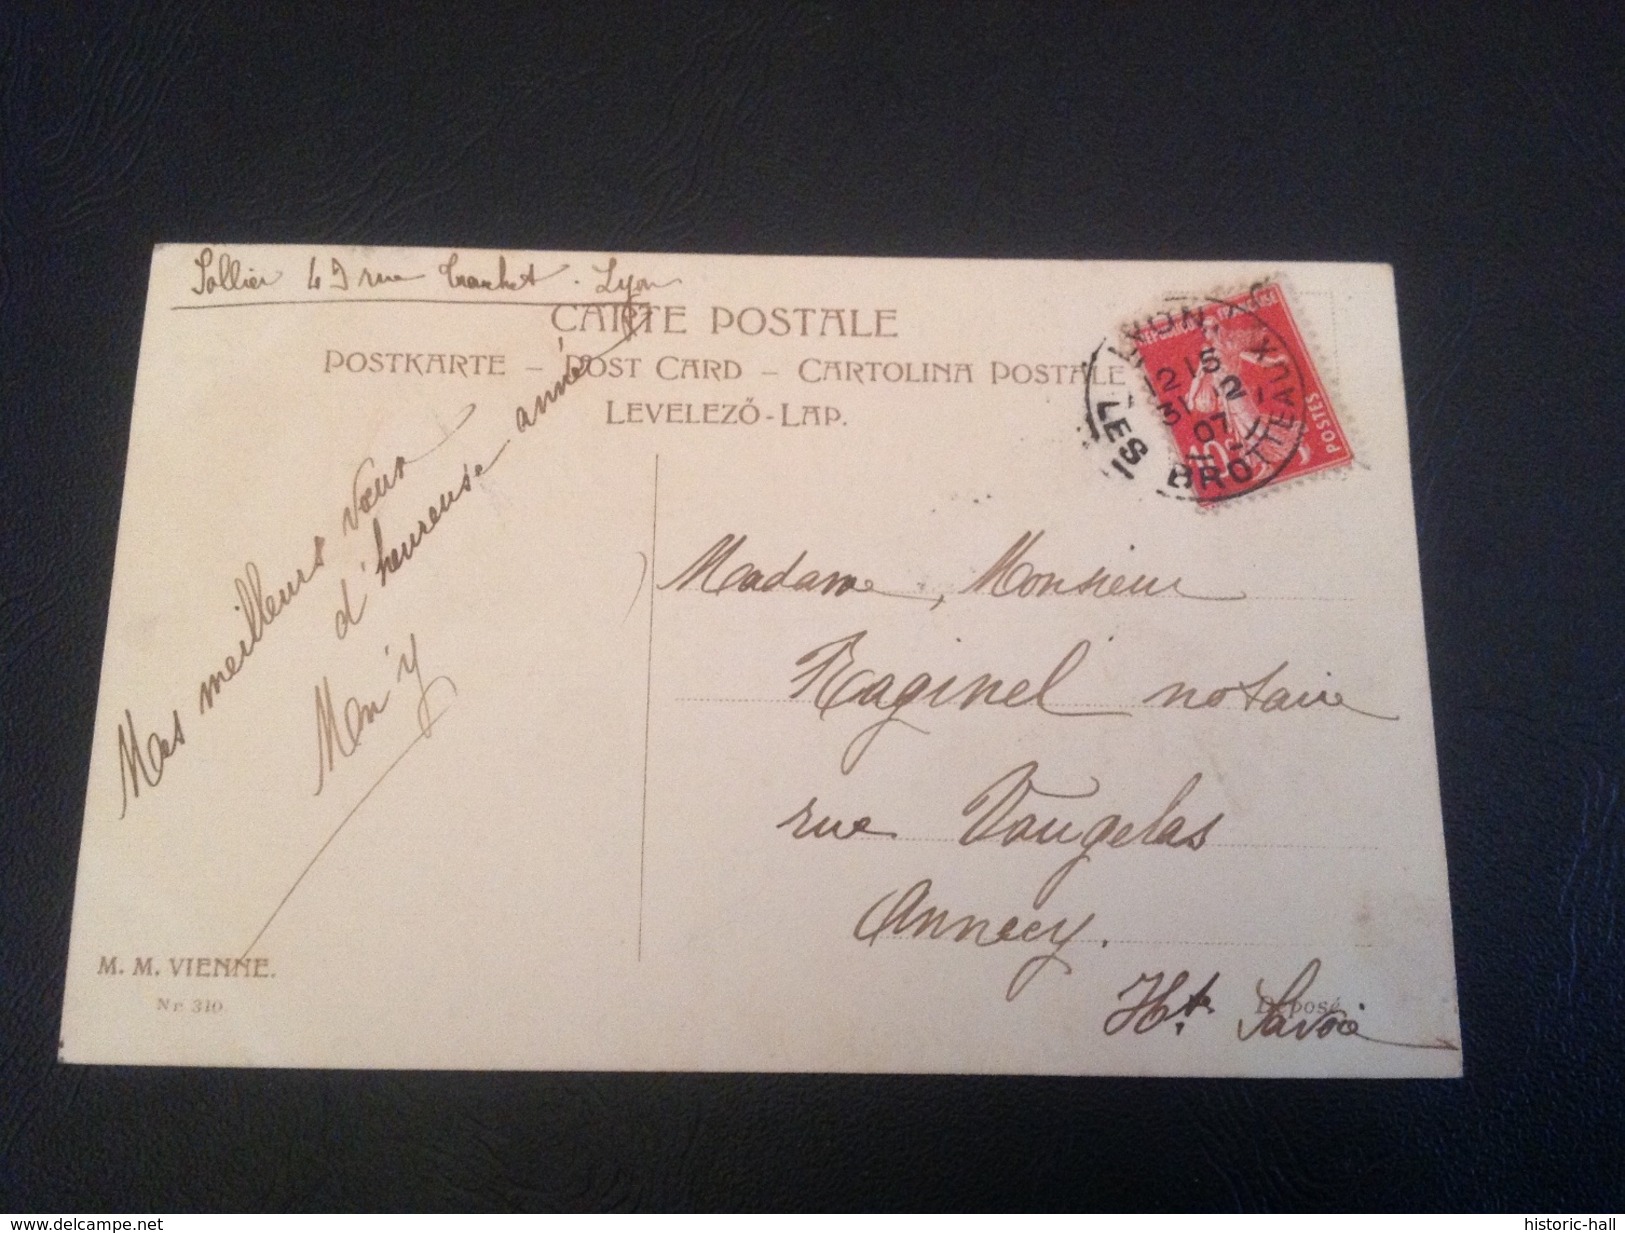 Sollier 43 rue Tranchet. Lyon
CARTE POSTALE
POSTKARTE – POST CARD – CARTOLINA POSTALE
LEVELEZŐ-LAP.
LYON
LES BROTTEAUX
12 15
31 12
07
REPUBLIQUE FRANÇAISE
POSTES
10c
Mes meilleurs vœux
d'heureuse année
Madame, Monsieur
Raginel notaire
rue Vaugelas
Annecy.
Hte Savoie
M. M. VIENNE.
Nr. 310.
Déposé
www.delcampe.net
historic-hall